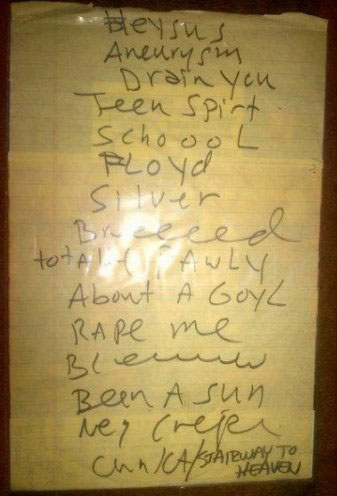 Heysus
Aneurysm
Drain you
Teen Spirt
SchoooL
FLoyd
Silver
Breeeed
totAlly PAwLy
About A GoyL
RApe me
Blewww
Been A sun
Neg Creep
/CA/STAIRWAY TO
HEAVEN